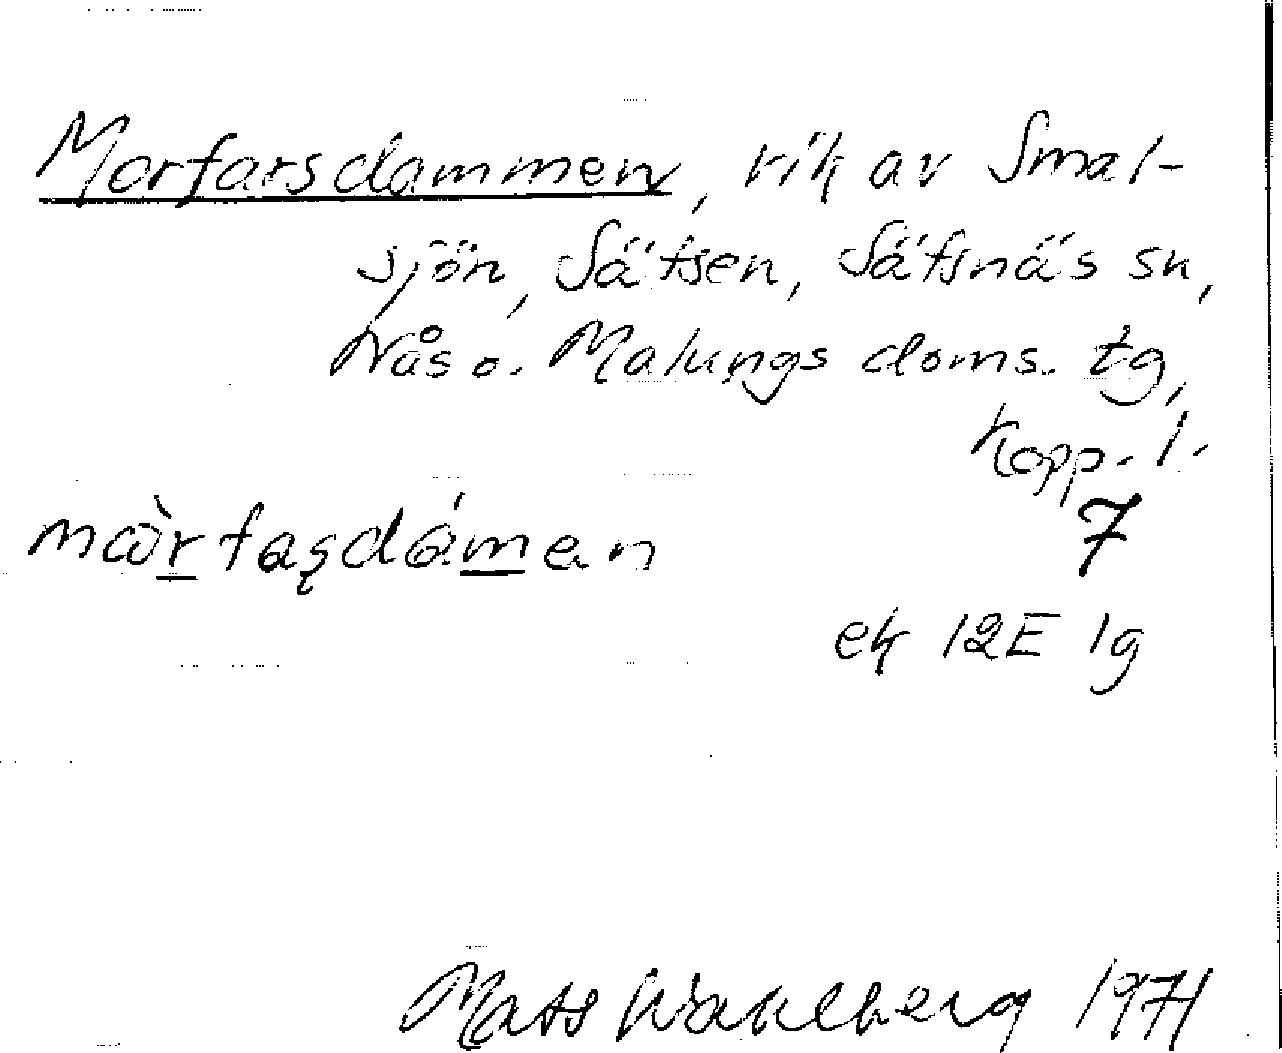 Morfarsdammen, vik av Smal-
sjön, Sätsen, Säfsnäs sn,
Nås o. Malungs doms. tg,
Kopp. l.
7
ek 12E 1g
Mats Wahlberg 1971